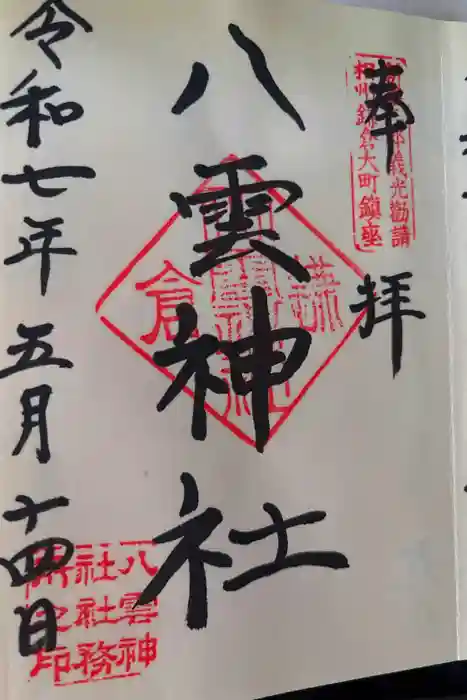 奉拝
相州鎌倉大町鎮座
義光勧請
八雲神社
鎌倉
令和七年五月十四日
八雲神
社社務
所之印